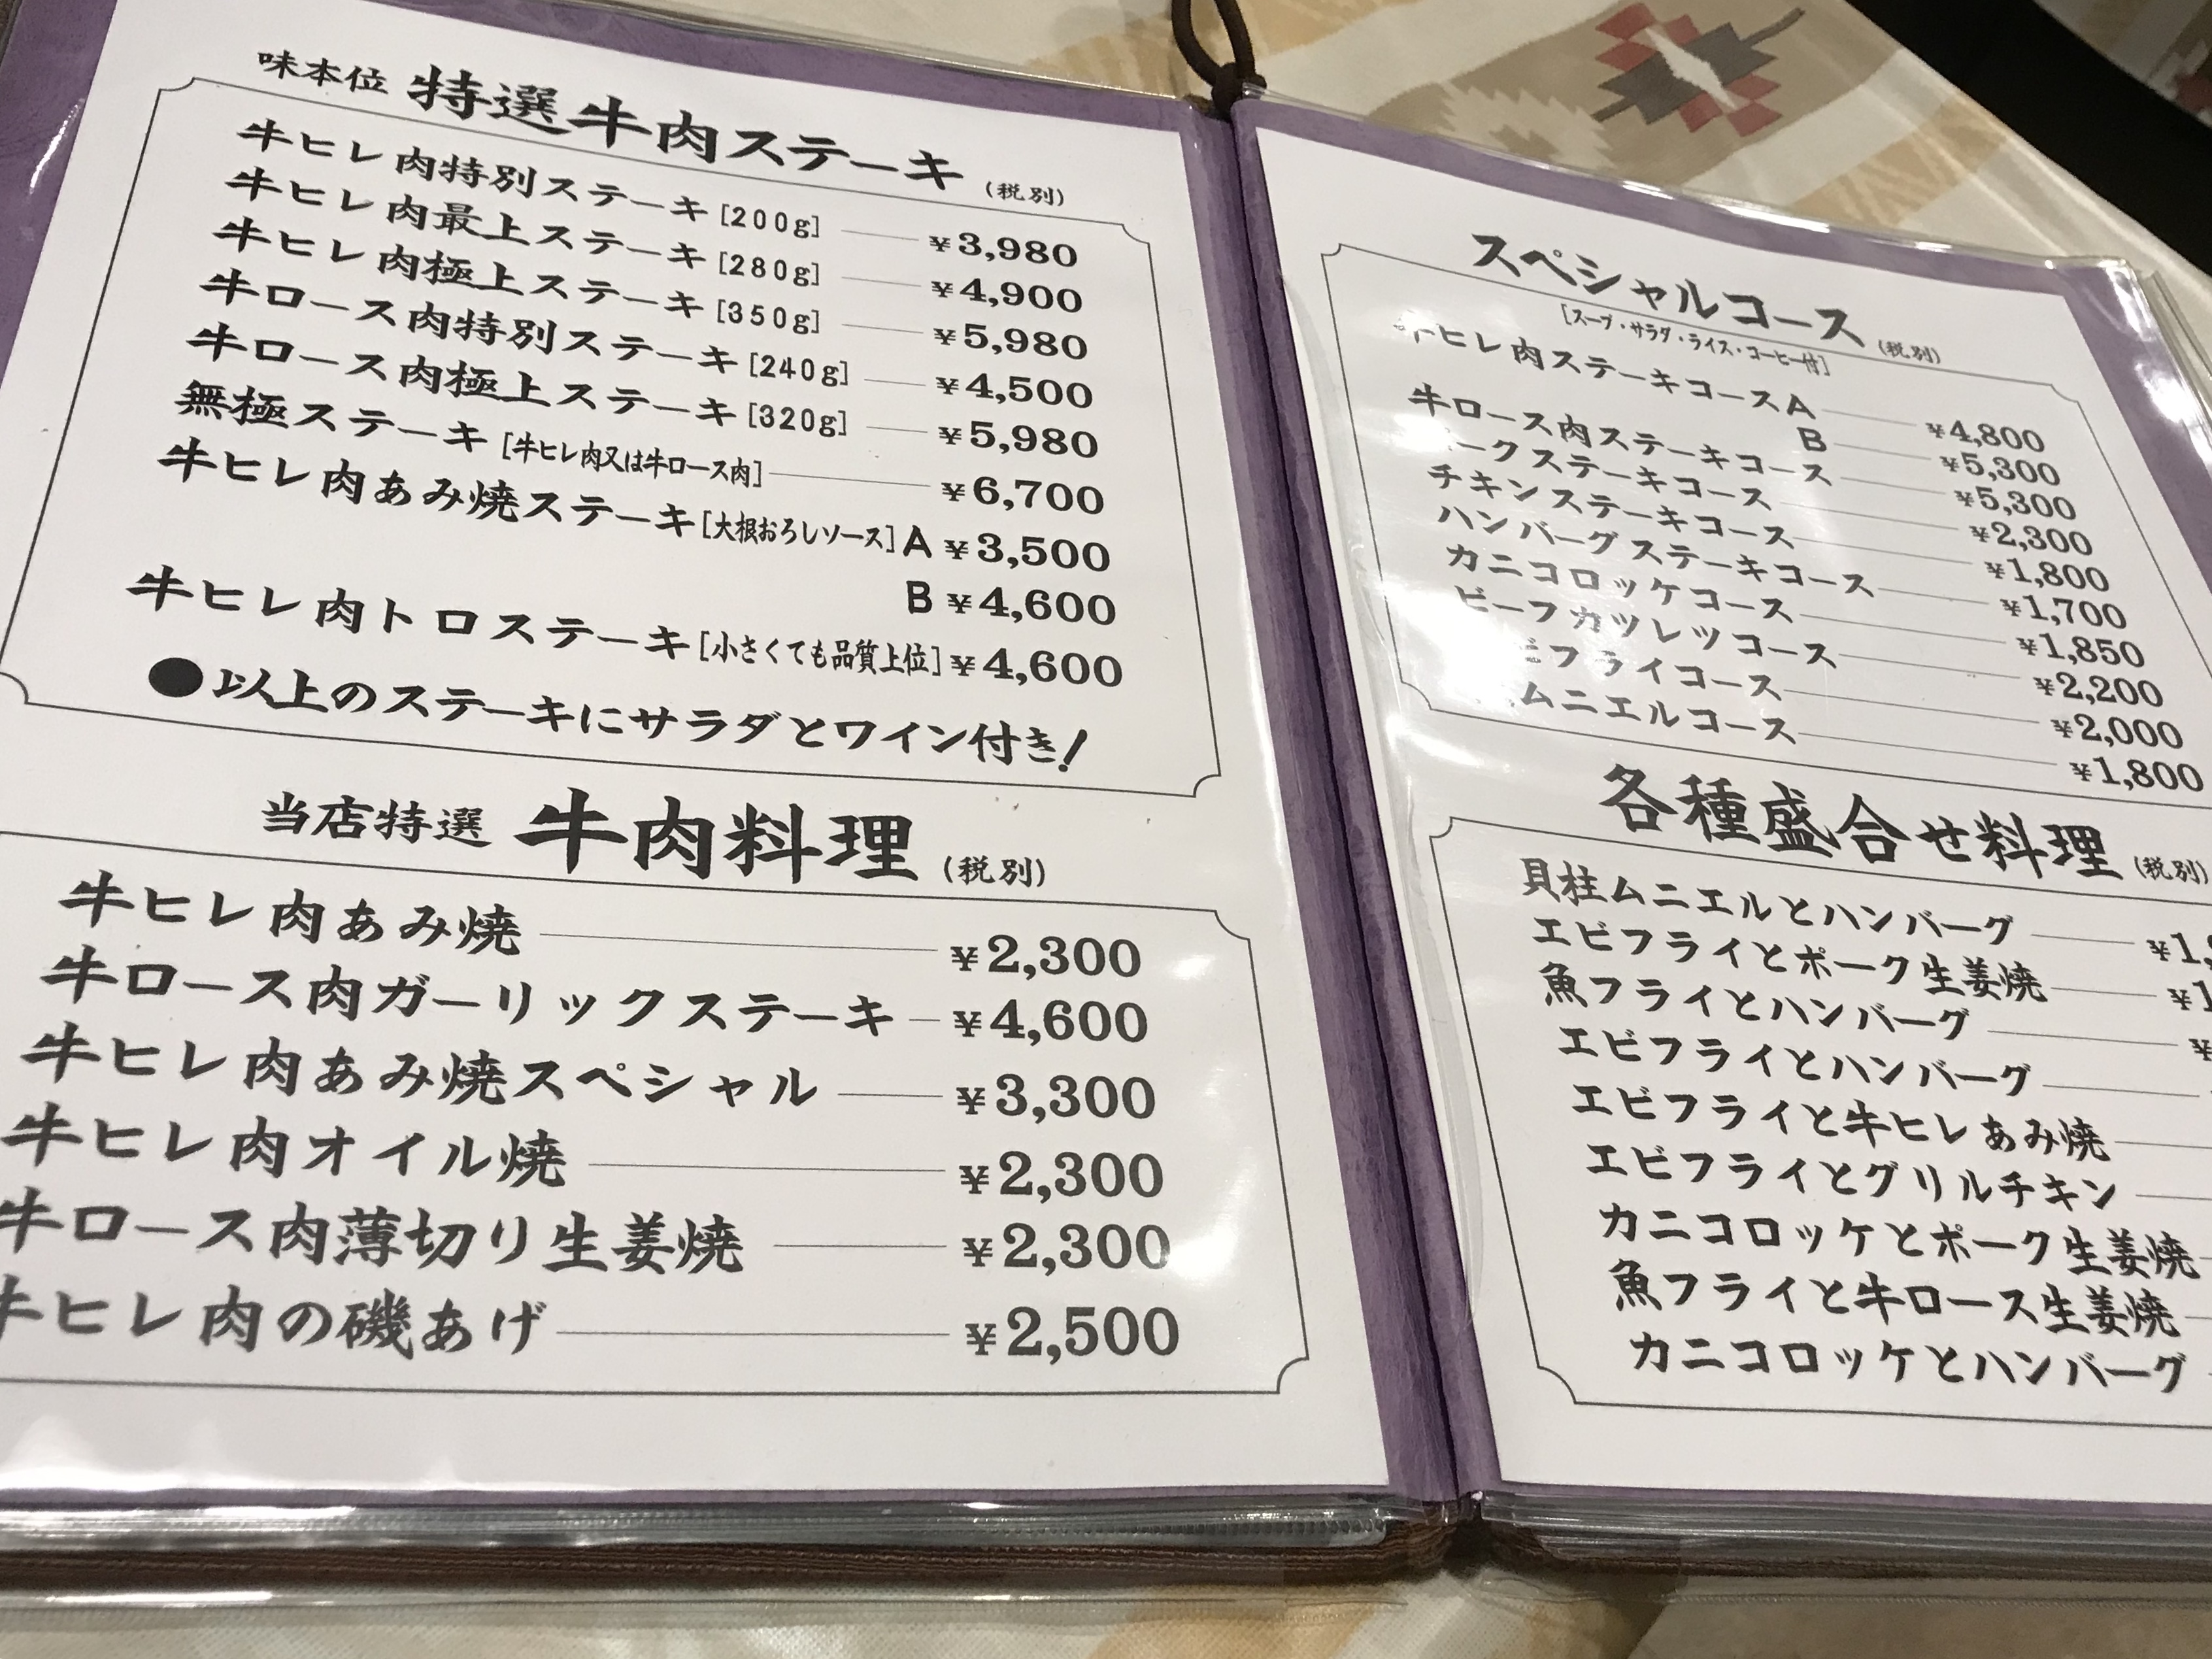 味本位 特選牛肉ステーキ (税別)
牛ヒレ肉特別ステーキ[200g] ¥3,980
牛ヒレ肉最上ステーキ[280g] ¥4,900
牛ヒレ肉極上ステーキ[350g] ¥5,980
牛ロース肉特別ステーキ[240g] ¥4,500
牛ロース肉極上ステーキ[320g] ¥5,980
無極ステーキ[牛ヒレ肉又は牛ロース肉] ¥6,700
牛ヒレ肉あみ焼ステーキ[大根おろしソース]A ¥3,500
B ¥4,600
牛ヒレ肉トロステーキ[小さくても品質上位] ¥4,600
●以上のステーキにサラダとワイン付き!
当店特選 牛肉料理 (税別)
牛ヒレ肉あみ焼 ¥2,300
牛ロース肉ガーリックステーキ ¥4,600
牛ヒレ肉あみ焼スペシャル ¥3,300
牛ヒレ肉オイル焼 ¥2,300
牛ロース肉薄切り生姜焼 ¥2,300
牛ヒレ肉の磯あげ ¥2,500
スペシャルコース (税別)
[スープ・サラダ・ライス・コーヒー付]
牛ヒレ肉ステーキコースA ¥4,800
B ¥5,300
牛ロース肉ステーキコース ¥5,300
ークステーキコース ¥2,300
チキンステーキコース ¥1,800
ハンバーグステーキコース ¥1,700
カニコロッケコース ¥1,850
ビーフカツレツコース ¥2,200
エビフライコース ¥2,000
ムニエルコース ¥1,800
各種盛合せ料理 (税別)
貝柱ムニエルとハンバーグ ¥1,
エビフライとポーク生姜焼 ¥1
魚フライとハンバーグ ¥
エビフライとハンバーグ
エビフライと牛ヒレあみ焼
エビフライとグリルチキン
カニコロッケとポーク生姜焼
魚フライと牛ロース生姜焼
カニコロッケとハンバーグ